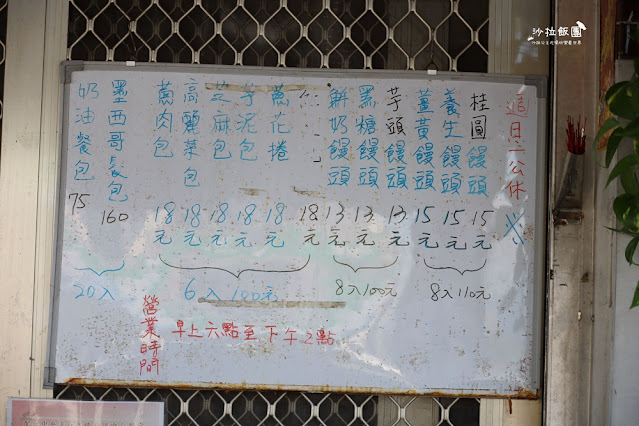 沙拉飯團
週日、一公休
桂圓饅頭 15元
養生饅頭 15元
薑黃饅頭 15元
8入110元
芋頭饅頭 13元
黑糖饅頭 13元
鮮奶饅頭 13元
8入100元
18元
蔥花捲 18元
芋泥包 18元
芝麻包 18元
高麗菜包 18元
蔥肉包 18元
6入100元
墨西哥長包 160
奶油餐包 75
20入
營業時間
早上六點至下午2點